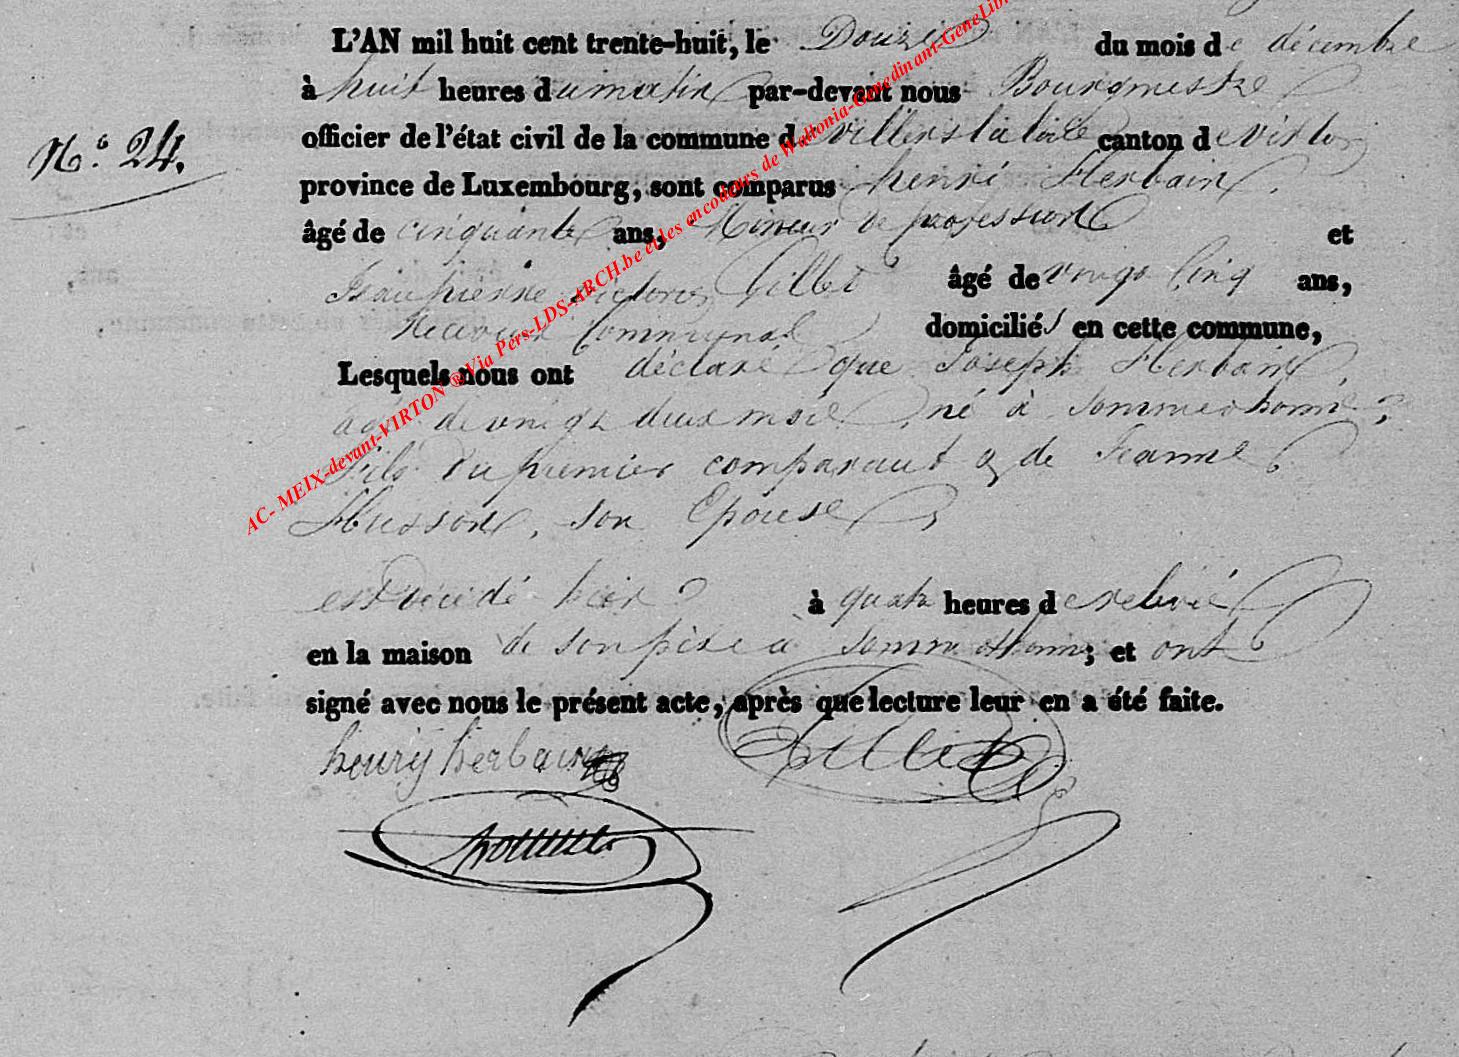 L'AN mil huit cent trente-huit, le Douze du mois de décembre
à huit heures du matin par-devant nous Bourgmestre
officier de l'état civil de la commune de villers la loue canton de virton
N.° 24.
province de Luxembourg, sont comparus henri Herbain,
âgé de cinquante ans, Mineur de profession et
Jean pierre victor Gillet âgé de vingt cinq ans,
Receveur Communal domiciliés en cette commune,
Lesquels nous ont déclaré que Joseph Herbain,
agé de vingt deux mois né à sommethonne,
fils du premier comparant & de Jeanne
Husson, son Epouse,
est décédé hier à quatre heures de relevée
en la maison de son père à Sommethonne; et ont
signé avec nous le présent acte, après que lecture leur en a été faite.
henry herbain Gillet
AC- MEIX-devant-VIRTON ® Via Pers-LDS-ARCH.be et les encodeurs de Wallonia-Genedinant-GeneLibr